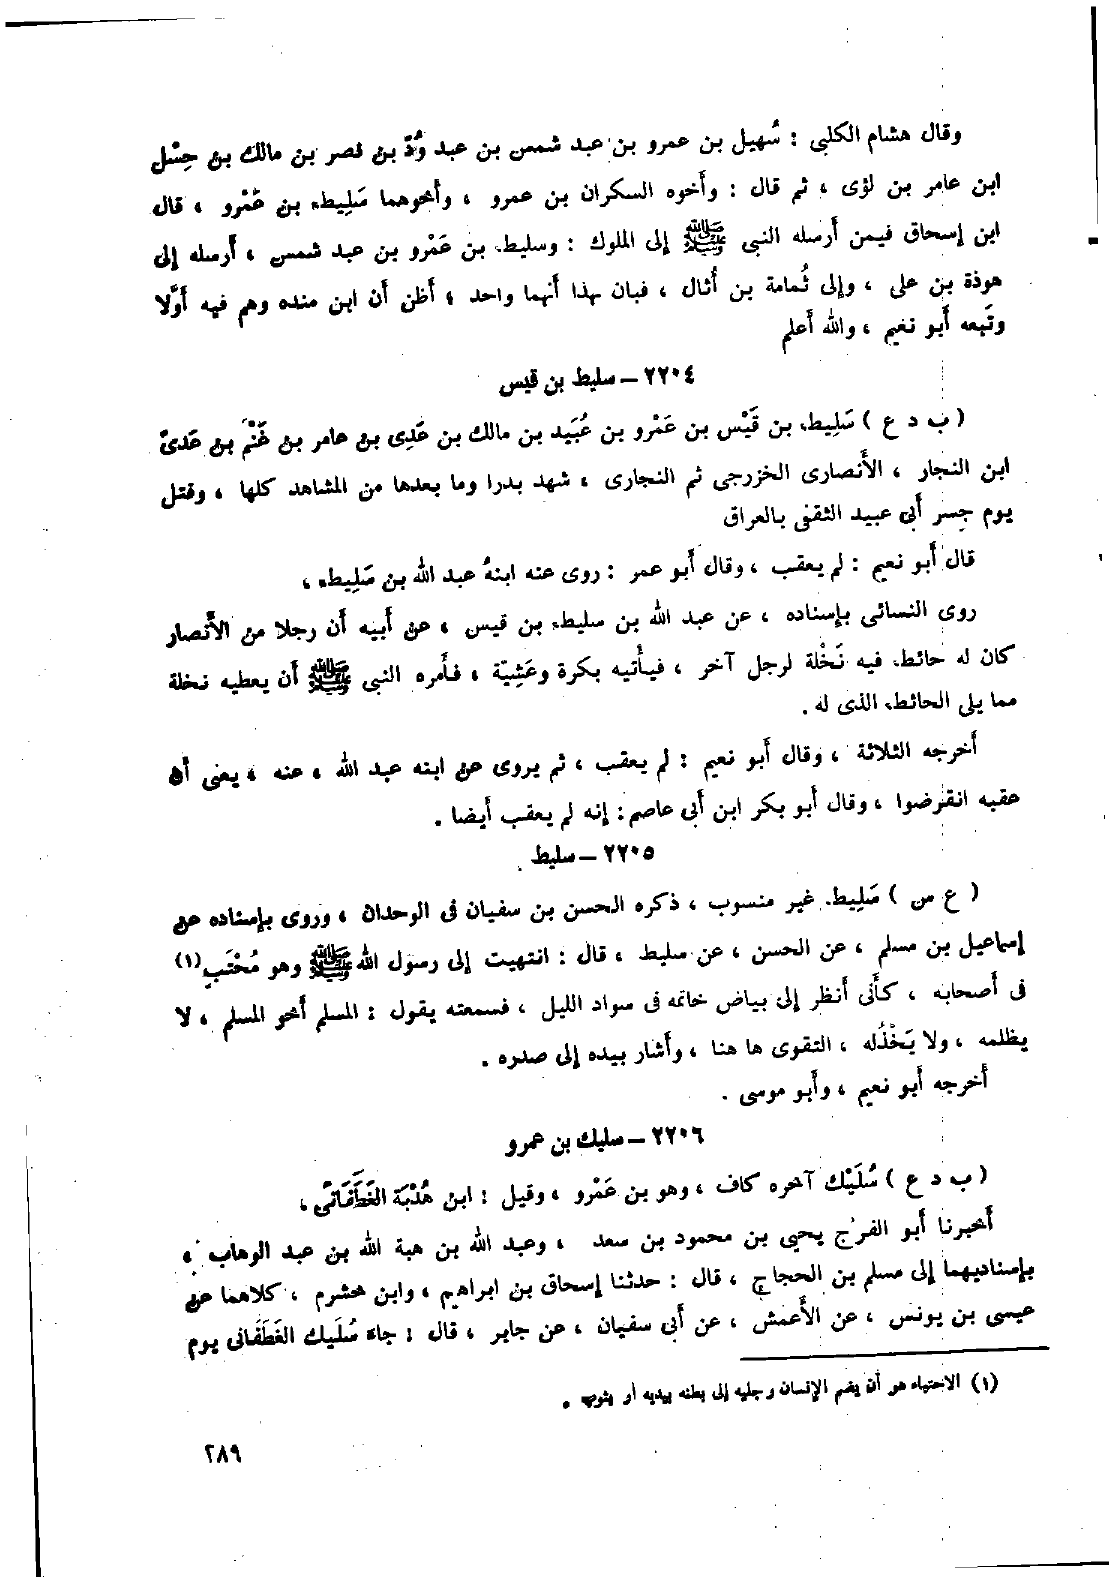 وقال هشام الكلبي : سُهيل بن عمرو بن عبد شمس بن عبد وُدّ بن نصر بن مالك بن حِسْل
ابن عامر بن لؤى ، ثم قال : وأَخوه السكران بن عمرو ، وأَخوهما سَلِيط بن عَمْرو ، قال
ابن إسحاق فيمن أَرسله النبى ﷺ إلى الملوك : وسليط بن عَمْرو بن عبد شمس ، أَرسله إلى
هوذة بن على ، وإلى ثُمامة بن أُثال ، فبان بهذا أَنهما واحد ، أَظن أَن ابن منده وهم فيه أَوَّلا
وتَبعه أَبو نعيم ، والله أَعلم
٢٢٠٤ – سليط بن قيس
( ب د ع ) سَلِيط بن قَيْس بن عَمْرو بن عُبَيد بن مالك بن عَدِى بن عامر بن غَنْم بن عَدىّ
ابن النجار ، الأَنصارى الخزرجى ثم النجارى ، شهد بدرا وما بعدها من المشاهد كلها ، وقتل
يوم جِسر أَبى عبيد الثقفى بالعراق
قال أَبو نعيم : لم يعقب ، وقال أَبو عمر : روى عنه ابنهُ عبد الله بن سَلِيط ،
روى النسائى بإسناده ، عن عبد الله بن سليط بن قيس ، عن أَبيه أَن رجلا من الأَنصار
كان له حائط فيه نَخْلة لرجل آخر ، فيأْتيه بكرة وعَشِيّة ، فأَمره النبى ﷺ أَن يعطيه نخلة
مما يلى الحائط الذى له .
أَخرجه الثلاثة ، وقال أَبو نعيم : لم يعقب ، ثم يروى عن ابنه عبد الله ، عنه ، يعنى أَن
عقبه انقرضوا ، وقال أَبو بكر ابن أَبى عاصم : إنه لم يعقب أَيضا .
٢٢٠٥ – سليط
( ع س ) سَلِيط غير منسوب ، ذكره الحسن بن سفيان فى الوحدان ، وروى بإسناده عن
إسماعيل بن مسلم ، عن الحسن ، عن سليط ، قال : انتهيت إلى رسول الله ﷺ وهو مُحْتَبٍ (١)
فى أَصحابه ، كأَنى أَنظر إلى بياض خاتمه فى سواد الليل ، فسمعته يقول : المسلم أَخو المسلم ، لا
يظلمه ، ولا يَخْذُله ، التقوى ها هنا ، وأَشار بيده إلى صدره .
أَخرجه أَبو نعيم ، وأَبو موسى .
٢٢٠٦ – سليك بن عمرو
( ب د ع ) سُلَيْك آخره كاف ، وهو بن عَمْرو ، وقيل : ابن هُدْبَة الغَطَفَانى ،
أَخبرنا أَبو الفرج يحيى بن محمود بن سعد ، وعبد الله بن هبة الله بن عبد الوهاب ،
بإسناديهما إلى مسلم بن الحجاج ، قال : حدثنا إسحاق بن ابراهيم ، وابن خشرم ، كلاهما عن
عيسى بن يونس ، عن الأَعمش ، عن أَبى سفيان ، عن جابر ، قال : جاء سُلَيك الغَطَفَانى يوم
(١) الاحتباء هو أن يضم الإنسان رجليه إلى بطنه بيديه أو بثوب .
٢٨٩